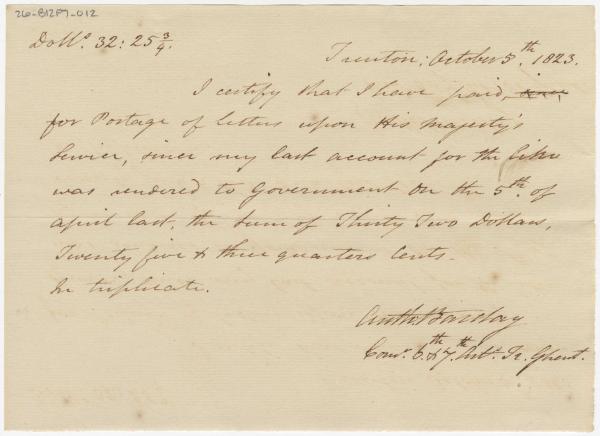 26-B12F7-012
Dolls. 32: 25 3/4.
Trenton; October 5th. 1823.
I certify that I have paid,
for Postage of letters upon His Majesty's
Service, since my last account for the like
was rendered to Government on the 5th. of
april last, the Sum of Thirty Two Dollars,
Twenty five & three quarters Cents.
In triplicate.
Anth: Barclay
Comr. 6th & 7th Arts. Tr. Ghent.